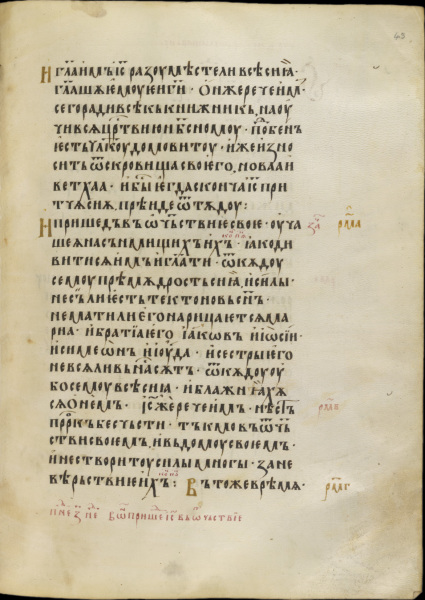 И гл҃а имъ і҃с разоумѣсте ли всѣ сиꙗ҆·
гл҃аша же моу ѥи г҃и· Онже рече им·
сего ради всѣкъ книжникъ, наоу
чивсѧ цр҃твию нб҃сномоу· подобенъ
ѥсть чл҃кѹ домовитоу· иже изно
ситъ ѿ скровища своѥго, нова и
ветхаа· и бы҃ ѥгда сконча і҃с при
тчѧ сиѧ, прѣиде ѿ тѫдоу:
И пришедъ въ ѿчьствиѥ свое· оуча
ше ѧ на сънмищихъ ихъ· ꙗко ди
вити сѧ имъ и гл҃ати· ѿкѫдоу
семоу прѣмѫдрость сиꙗ, и силы·
не сь ли ѥсть тектоновь сн҃ъ·
не мати ли ѥго нарицаетсѧ ма
риа· и братиꙗ ѥго іꙗковъ и іѡсіи·
и симеѡнъ и іоуда· и сестры ѥго
не всѧ ли въ насъ сѫтъ· ѿкѫдоу оу
бо семоу всѣ сиꙗ· и блажнꙗхѫ
сѧ о немъ· і҃с же рече им· нѣсть
пр҃ркъ бесчьсти· тъкмо въ ѿчь
стви своемъ, и въ домоу своемъ·
и не створи тоу силы многы· зане
вѣрьствиѥ ихъ: Въ то же врѣмѧ·